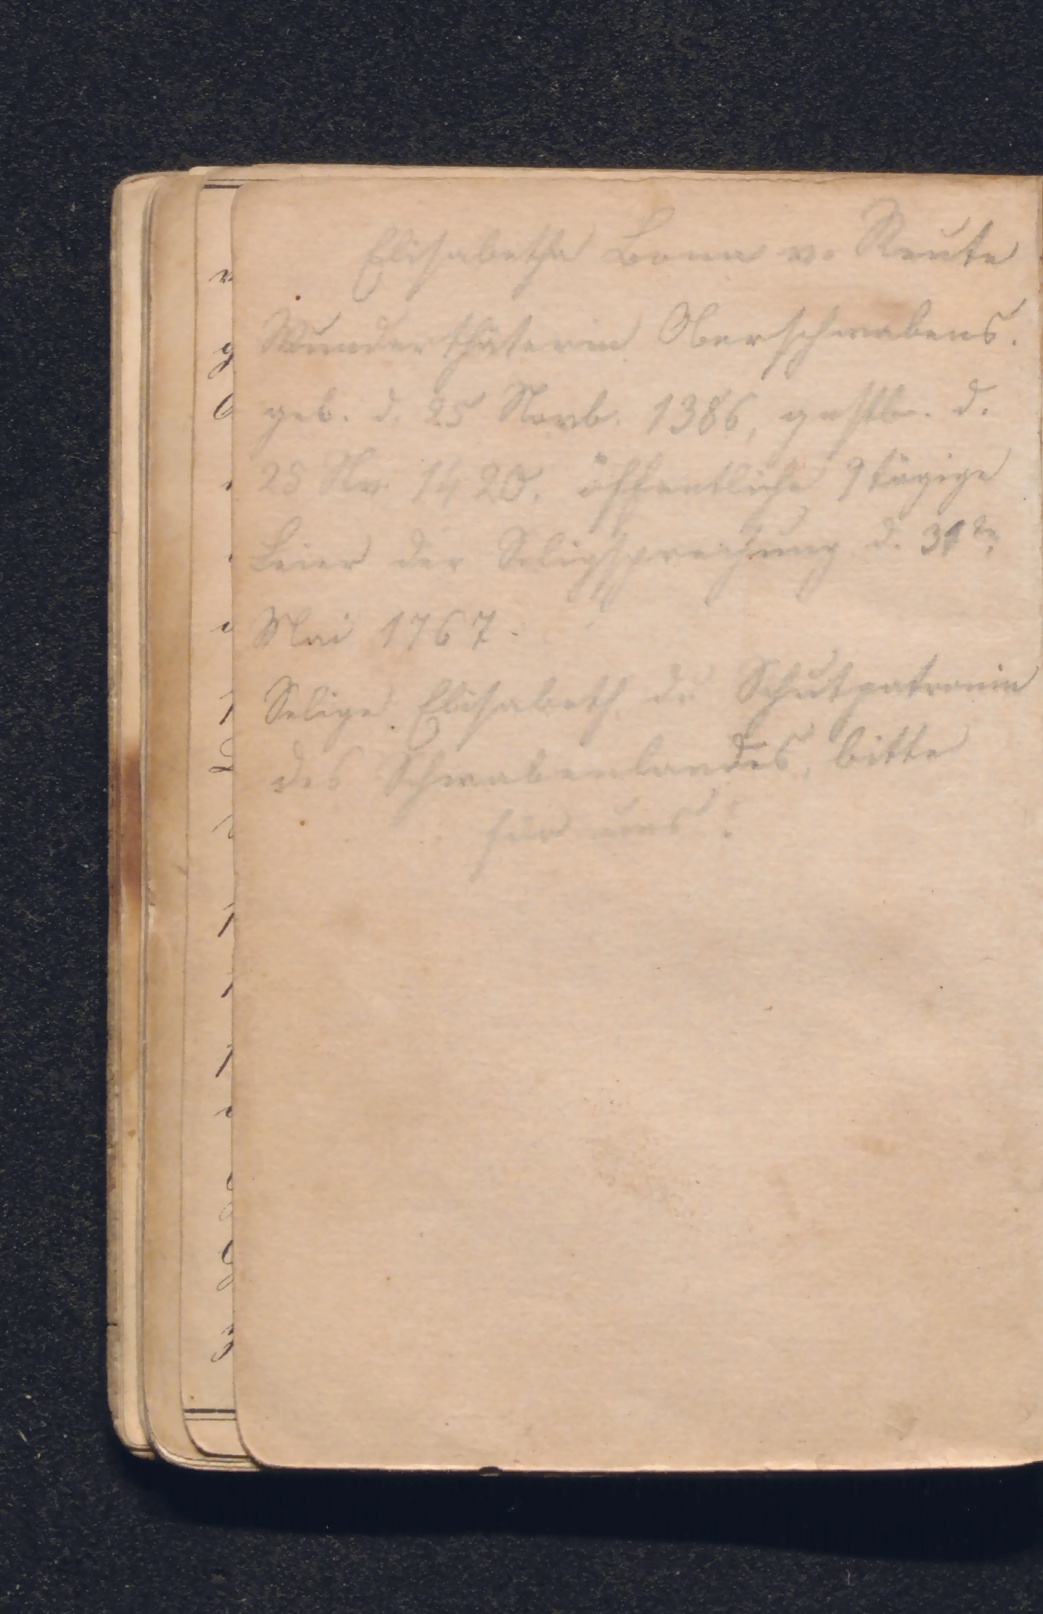 Elisabetha Bona v. Reute
Wunderthäterin Oberschwabens.
geb. d. 25 Novb. 1386, gestb. d.
25 Nv. 1420. öffentliche 9tägige
Feier der Seligsprechung d. 31te
Mai 1767.
Selige Elisabeth, du Schutpatronin
des Schwabenlandes, bitte
für uns!